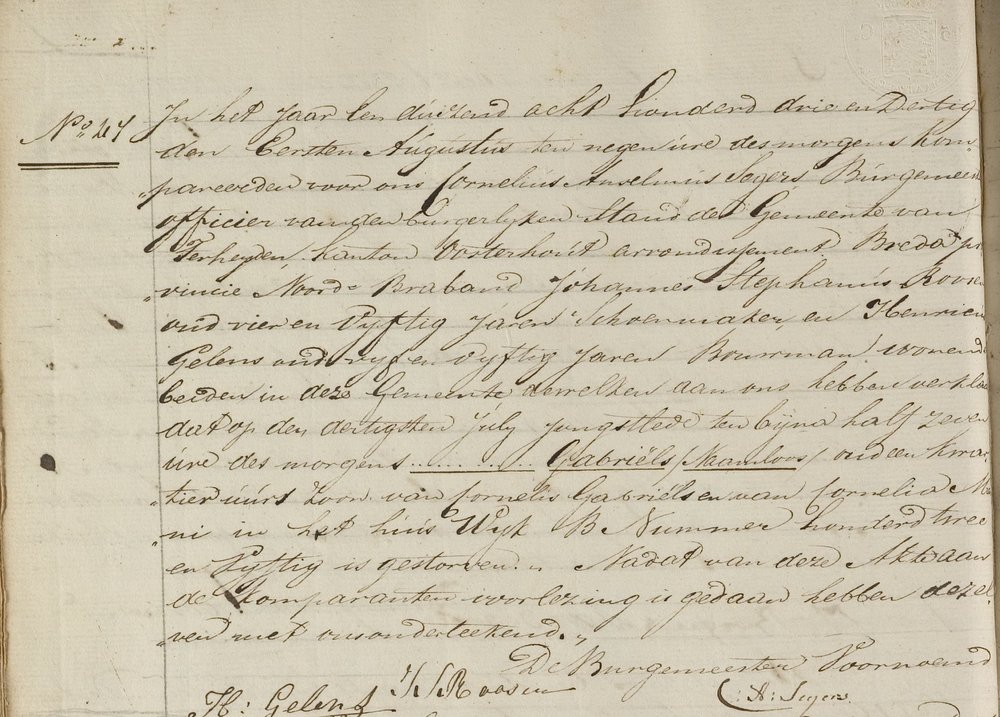 No 27 In het Jaar Een duizend acht honderd drie en Dertig
den Eersten Augustus ten negen ure des morgens kom
„pareerden voor ons Cornelius Anselmus Segers Burgemeest
officier van den burgerlyken Stand der Gemeente van
Terheyden, kanton Oosterhout arrondissement Breda pr
„vincie Noord-Braband Johannes Stephanus
oud vier en Vyftig Jaren Schoenmaker, en Henricu
Gelens oud vyf en Vyftig Jaren Bouwman, wonend
beiden in deze Gemeente dewelken aan ons hebben verkla
dat op den dertigsten July Jongstlede ten byna half zeven
ure des morgens ............ Gabriëls /Naamloos/ oud een kwar
„tier uurs Zoon van Cornelis Gabriëls en van Cornelia
„ni in het huis Wyk B Nummer honderd twee
en Vyftig is gestorven. „ Nadat van deze Akte aan
de Komparanten voorlezing is gedaan hebben dezel
„ven met ons onderteekend. „
De Burgemeester Voornoemd
H: Gelens J S Roosen C: A: Segers